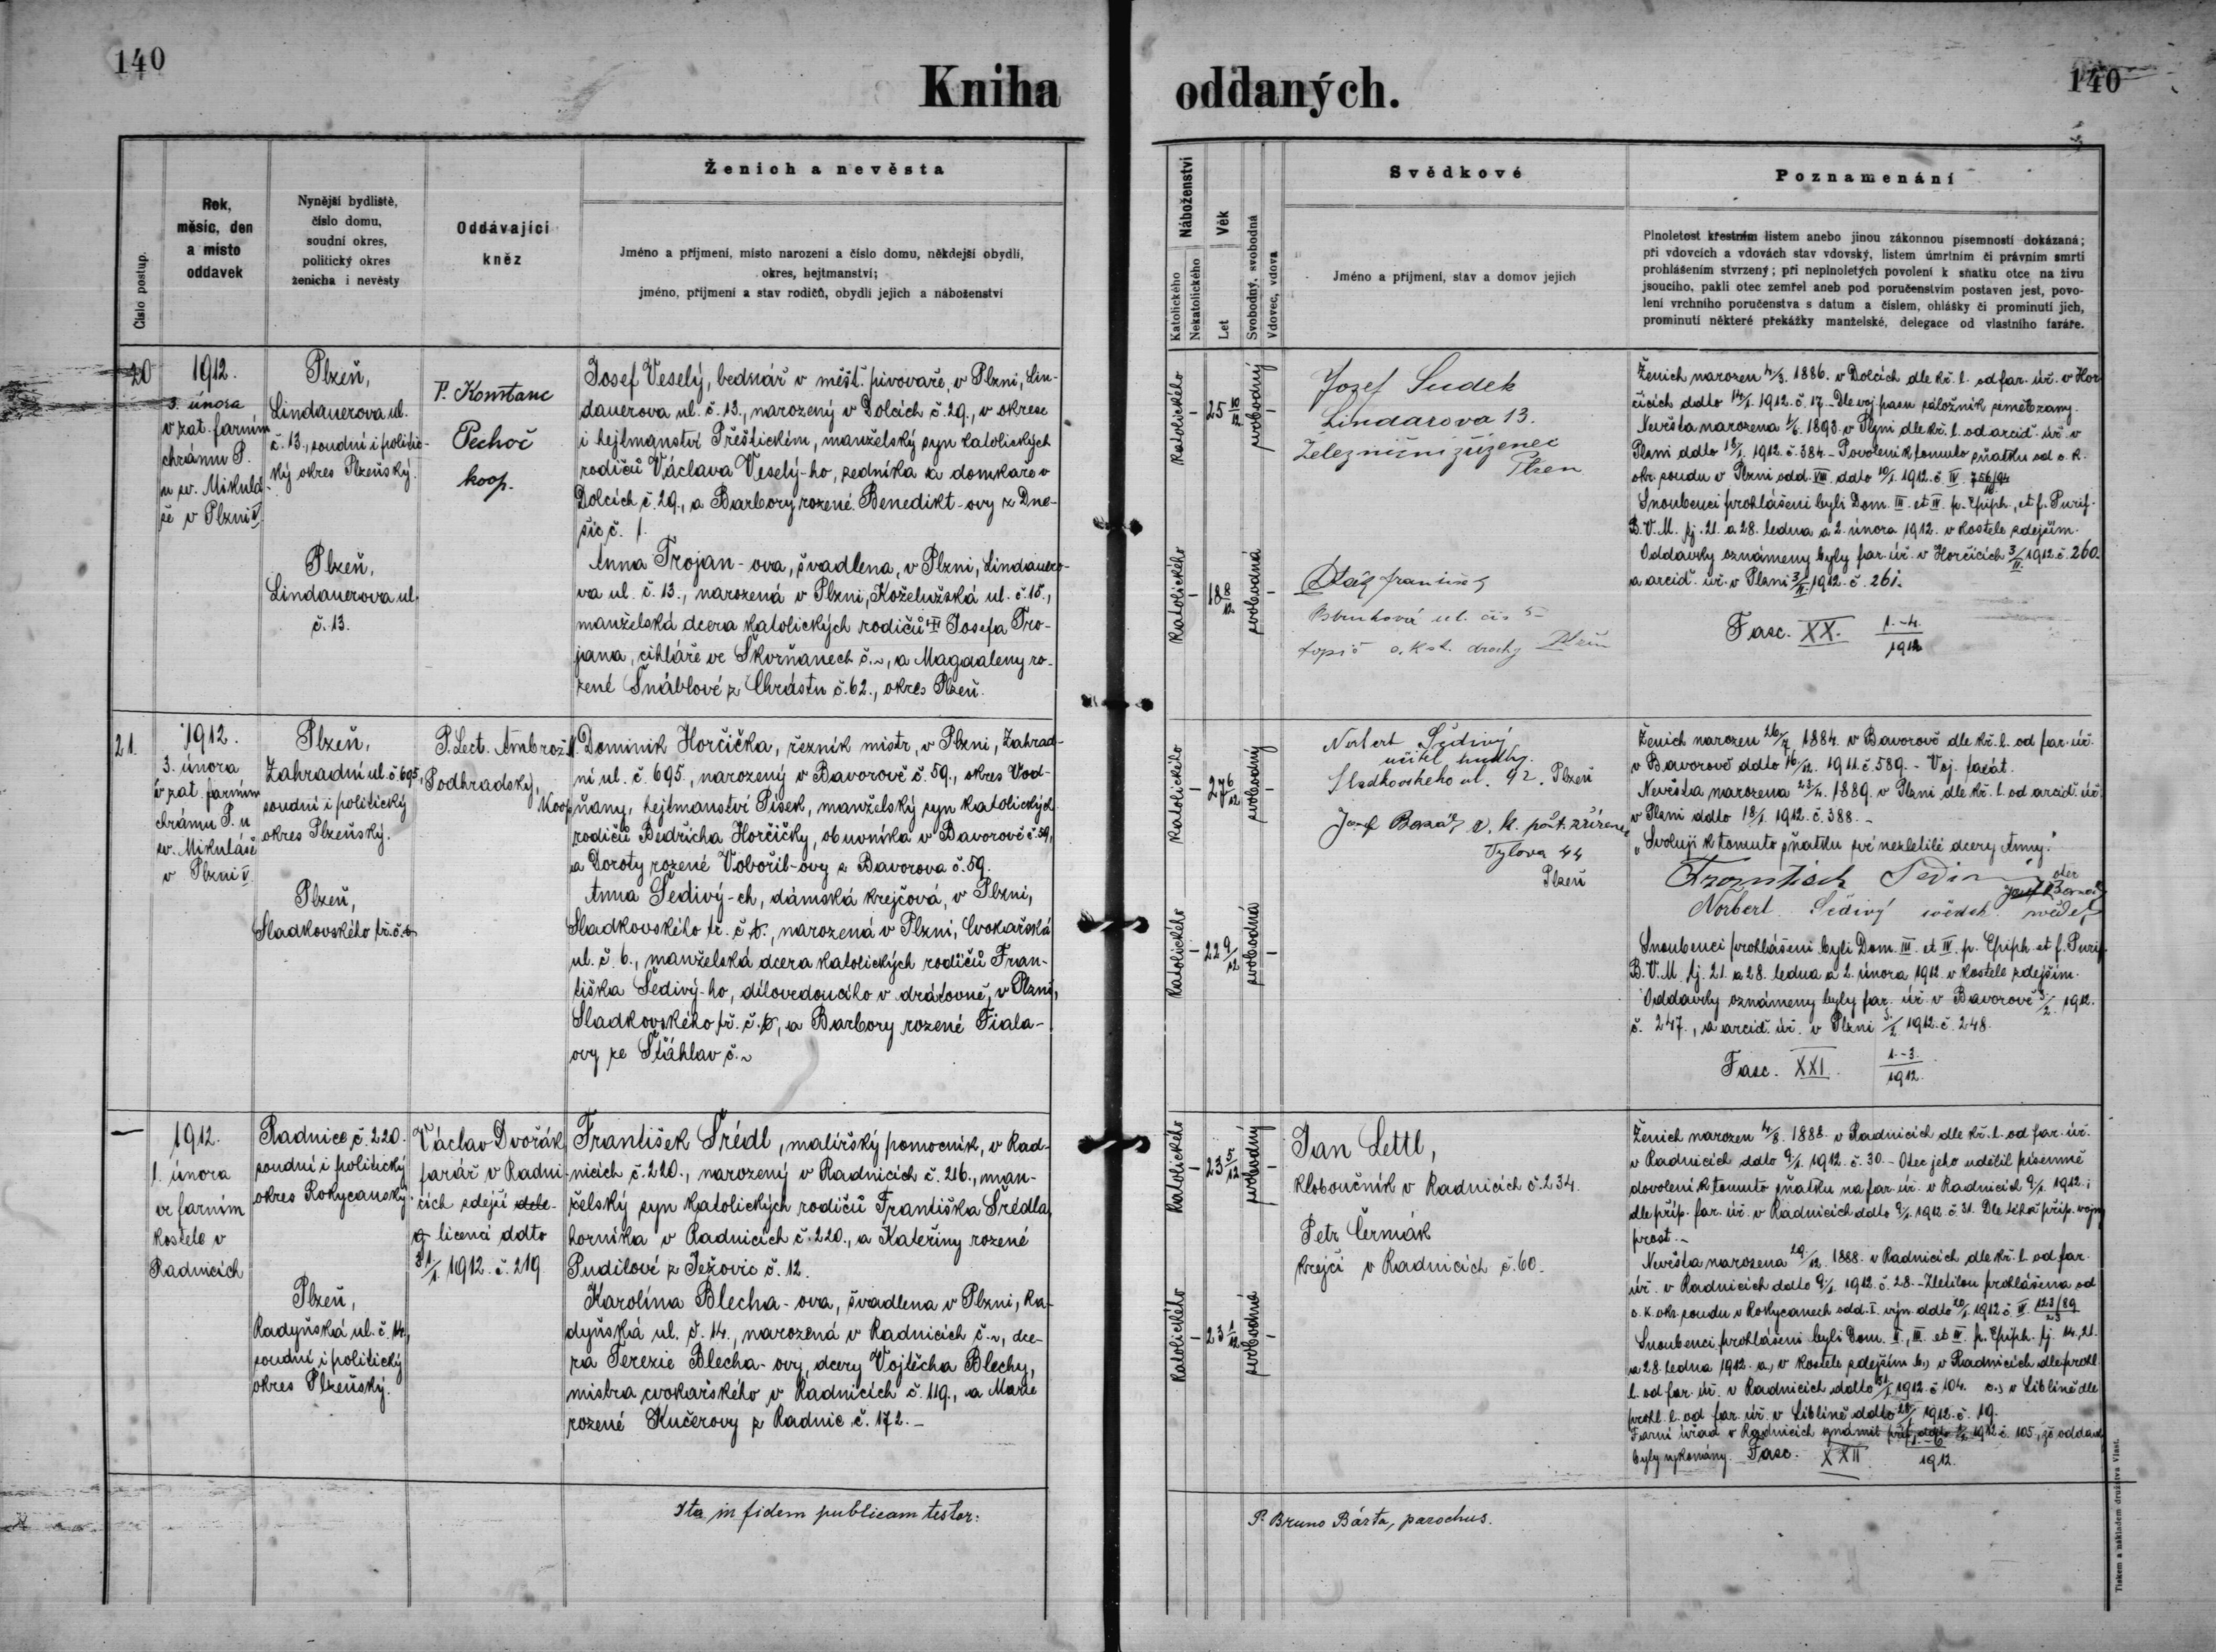 140
Kniha oddaných.
140
Číslo postup.
Rok,
měsíc, den
a místo
oddavek
Nynější bydliště,
číslo domu,
soudní okres,
politický okres
ženicha i nevěsty
Oddávající
kněz
Ženich a nevěsta
Jméno a příjmení, místo narození a číslo domu, někdejší obydlí,
okres, hejtmanství;
jméno, příjmení a stav rodičů, obydlí jejich a náboženství
Náboženství
Katolického
Nekatolického
Věk
Let
Svobodný, svobodná
Vdovec, vdova
Svědkové
Jméno a příjmení, stav a domov jejich
Poznamenání
Plnoletost křestním listem anebo jinou zákonnou písemností dokázaná;
při vdovcích a vdovách stav vdovský, listem úmrtním či právním smrti
prohlášením stvrzený; při neplnoletých povolení k sňatku otce na živu
jsoucího, pakli otec zemřel aneb pod poručenstvím postaven jest, povo-
lení vrchního poručenstva s datum a číslem, ohlášky či prominutí jich,
prominutí některé překážky manželské, delegace od vlastního faráře.
20
1912.
3. února
v zat. farním
chrámu P.
u sv. Mikulá-
še v Plzni V.
Plzeň,
Lindauerova ul.
č. 13., soudní i politic-
ký okres Plzeňský.
Plzeň,
Lindauerova ul.
č. 13.
P. Konstanc
Pechoč
koop.
Josef Veselý, bednář v měšť. pivovaře, v Plzni, Lin-
dauerova ul. č. 13., narozený v Dolcích č. 29., v okrese
i hejtmanství Přeštickém, manželský syn katolických
rodičů Václava Veselý-ho, zedníka a domkáře v
Dolcích č. 29., a Barbory rozené Benedikt-ovy z Dne-
šic č. 1.
Anna Trojan-ova, švadlena, v Plzni, Lindauero-
va ul. č. 13., narozená v Plzni, Koželužská ul. č. 15.,
manželská dcera katolických rodičů Josefa Tro-
jana, cihláře ve Škvrňanech č. ~, a Magdaleny ro-
zené Šnáblové z Chrástu č. 62., okres Plzeň.
Katolického
-
25 10/12
svobodný
-
Katolického
-
18 8/12
svobodná
-
Jozef Sudek
Lindarova 13.
Železniční zřízenec
Plzen
František
ul. čís 5
topič c. k. st. dráhy Plzeň
Ženich narozen 4/3. 1886. v Dolcích dle kř. l. od far. úř. v Hor-
čicích ddto 14/1. 1912. č. 17. - Dle voj. pasu záložník
Nevěsta narozena 1/6. 1893. v Plzni dle kř. l. od arcid. úř. v
Plzni ddto 18/1. 1912. č. 384. - Povolení k tomuto sňatku od c. k.
okr. soudu v Plzni odd. VIII. ddto 10/1. 1912. č. IV.
Snoubenci prohlášeni byli Dom. III. et IV. p. Epiph., et f. Purif.
B. V. M. tj. 21. a 28. ledna a 2. února 1912. v kostele zdejším.
Oddavky oznámeny byly far. úř. v Horčicích 3/II. 1912. č. 260.
a arcid. úř. v Plzni 3/II. 1912. č. 261.
Fasc. XX. 1.-4. / 1912
21.
1912.
3. února
v zat. farním
chrámu P. u
sv. Mikuláše
v Plzni V.
Plzeň,
Zahradní ul. č. 695,
soudní i politický
okres Plzeňský.
Plzeň,
Sladkovského tř. č.
P. Lect. Ambrož M.
Podhradský,
Koop.
Dominik Horčička, řezník mistr, v Plzni, Zahrad-
ní ul. č. 695., narozený v Bavorově č. 59., okres Vod-
ňany, hejtmanství Písek, manželský syn katolických
rodičů Bedřicha Horčičky, obuvníka v Bavorově č. 59,
a Doroty rozené Vobořil-ovy z Bavorova č. 59.
Anna Šedivý-ch, dámská krejčová, v Plzni,
Sladkovského tř. č. , narozená v Plzni, Cvokařská
ul. č. 6., manželská dcera katolických rodičů Fran-
tiška Šedivý-ho, dílovedoucího v drátovně, v Plzni,
Sladkovského tř. č. , a Barbory rozené Fiala-
ovy ze Šťáhlav č. ~
Katolického
-
27 6/12
svobodný
-
Katolického
-
22 9/12
svobodná
-
Norbert Šedivý
učitel hudby.
Sladkovského ul. 92. Plzeň
Josef c. k. pošt. zřízenec
Tylova 44
Plzeň
Ženich narozen 26/7. 1884. v Bavorově dle kř. l. od far. úř.
v Bavorově ddto 16/12. 1911. č. 589. - Voj.
Nevěsta narozena 1889. v Plzni dle kř. l. od arcid. úř.
v Plzni ddto 18/1. 1912. č. 388. -
„Svoluji k tomuto sňatku své nezletilé dcery Anny."
otec
Norbert Šedivý svědek. svědek
Snoubenci prohlášeni byli Dom. III. et IV. p. Epiph. et f. Purif.
B. V. M. tj. 21. a 28. ledna a 2. února 1912. v kostele zdejším.
Oddavky oznámeny byly far. úř. v Bavorově 5/2. 1912.
č. 247., a arcid. úř. v Plzni 5/2. 1912. č. 248.
Fasc. XXI. 1.-3. / 1912.
—
1912.
1. února
ve farním
kostele v
Radnicích
Radnice č. 220.
soudní i politický
okres Rokycanský.
Plzeň,
Radyňská ul. č. 14.,
soudní i politický
okres Plzeňský.
Václav Dvořák
farář v Radni-
cích zdejší dele-
g. licencí ddto
31/1. 1912. č. 219
František Šrédl, malířský pomocník, v Rad-
nicích č. 220., narozený v Radnicích č. 216., man-
želský syn katolických rodičů Františka Šrédla,
horníka v Radnicích č. 220., a Kateřiny rozené
Pudilové z Ježovic č. 12.
Karolína Blecha-ova, švadlena v Plzni, Ra-
dyňská ul. č. 14., narozená v Radnicích č. ~, dce-
ra Terezie Blecha-ovy, dcery Vojtěcha Blechy,
mistra cvokařského v Radnicích č. 119., a Marie
rozené Kučerovy z Radnic č. 172. -
Katolického
-
23 5/12
svobodný
-
Katolického
-
23 1/12
svobodná
-
Jan Lettl,
kloboučník v Radnicích č. 234.
Petr Čermák
krejčí v Radnicích č. 60.
Ženich narozen 4/8. 1888. v Radnicích dle kř. l. od far. úř.
v Radnicích ddto 9/1. 1912. č. 30. - Otec jeho udělil písemně
dovolení k tomuto sňatku na far. úř. v Radnicích 9/1. 1912.;
dle příp. far. úř. v Radnicích ddto 9/1. 1912. č. 31. Dle téhož příp. vojny
prost. -
Nevěsta narozena 29/12. 1888. v Radnicích dle kř. l. od far.
úř. v Radnicích ddto 9/1. 1912. č. 28. - Zletilou prohlášena od
c. k. okr. soudu v Rokycanech odd. I. výn. ddto 20/1. 1912 č.
Snoubenci prohlášeni byli Dom. II., III. et IV. p. Epiph. tj. 14., 21.
a 28. ledna 1912. a, v kostele zdejším b,) v Radnicích dle prohl.
l. od far. úř. v Radnicích ddto 31/1. 1912. č. 104. c.) v Liblíně dle
prohl. l. od far. úř. v Liblíně ddto 1912. č. 19.
Farní úřad v Radnicích 1912 č. 105, že oddavky
byly vykonány. Fasc. XXII 1912.
Ita in fidem publicam testor:
P. Bruno Bárta, parochus.
Tiskem a nákladem družstva Vlast.